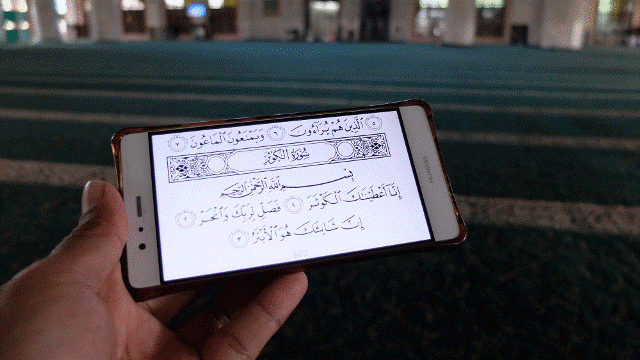 ٥ ٱلَّذِينَ هُمْ يُرَآءُونَ ٦ وَيَمْنَعُونَ ٱلْمَاعُونَ ٧
سُورَةُ الكَوْثَرِ
بِسْمِ ٱللَّهِ ٱلرَّحْمَٰنِ ٱلرَّحِيمِ
إِنَّآ أَعْطَيْنَٰكَ ٱلْكَوْثَرَ ١ فَصَلِّ لِرَبِّكَ وَٱنْحَرْ ٢
إِنَّ شَانِئَكَ هُوَ ٱلْأَبْتَرُ ٣
HUAWEI